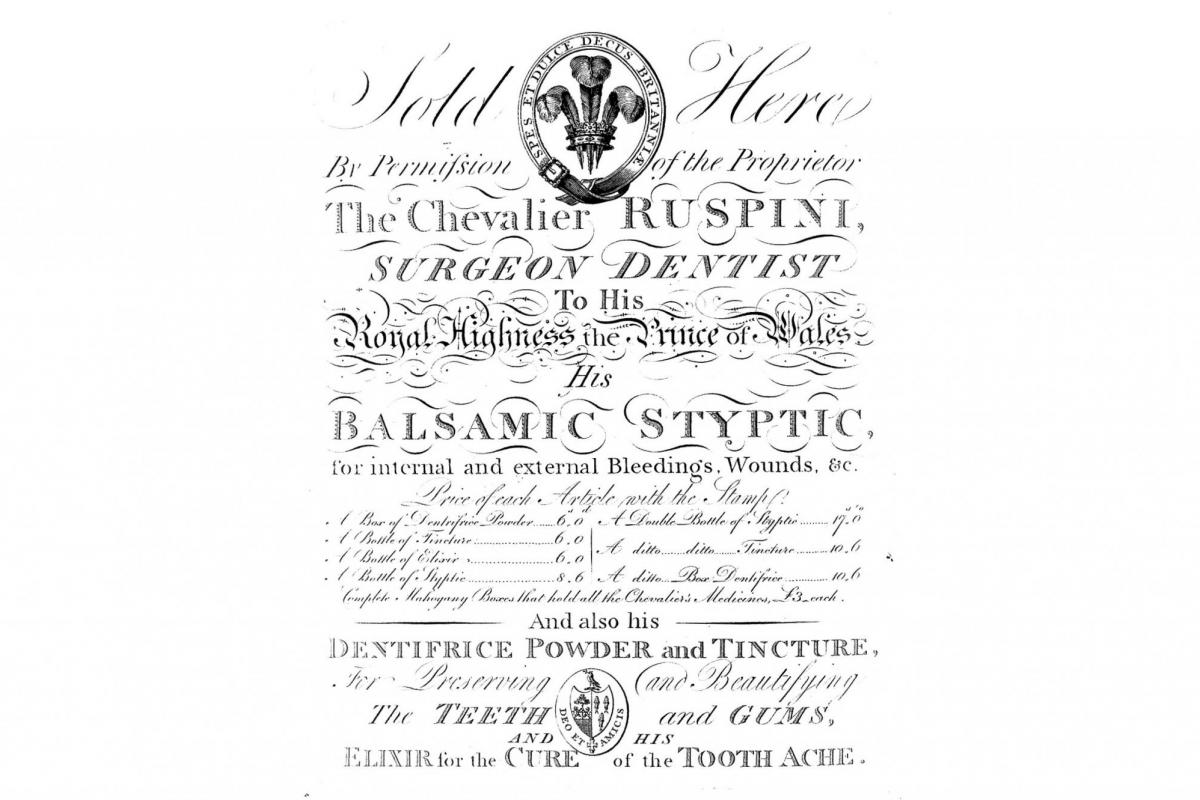 SPES ET DULCE DECUS BRITANNIÆ
Sold Here
By Permiſsion of the Proprietor
The Chevalier RUSPINI,
SURGEON DENTIST
To His
Royal Highness the Prince of Wales
His
BALSAMIC STYPTIC,
for internal and external Bleedings, Wounds, &c.
Price of each Article with the Stamps!
A Box of Dentrifrice Powder......6.0 A Double Bottle of Styptic.........17.0
A Bottle of Tincture...............6.0
A ditto......ditto.....Tincture.........10.6
A Bottle of Elixir...............6.0
A Bottle of Styptic...............8.6 A ditto...Box Dentifrice...........10.6
Complete Mahogany Boxes that hold all the Chevalier's Medicines, £3 each.
And also his
DENTIFRICE POWDER and TINCTURE,
For Preserving and Beautifying
The TEETH and GUMS,
DEO ET AMICIS
AND HIS
ELIXIR for the CURE of the TOOTH ACHE.